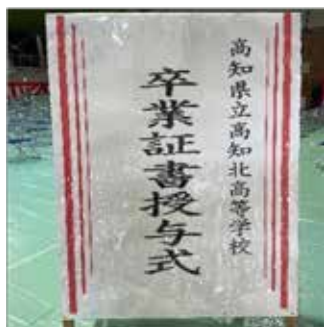 高知県立高知北高等学校
卒業証書授与式